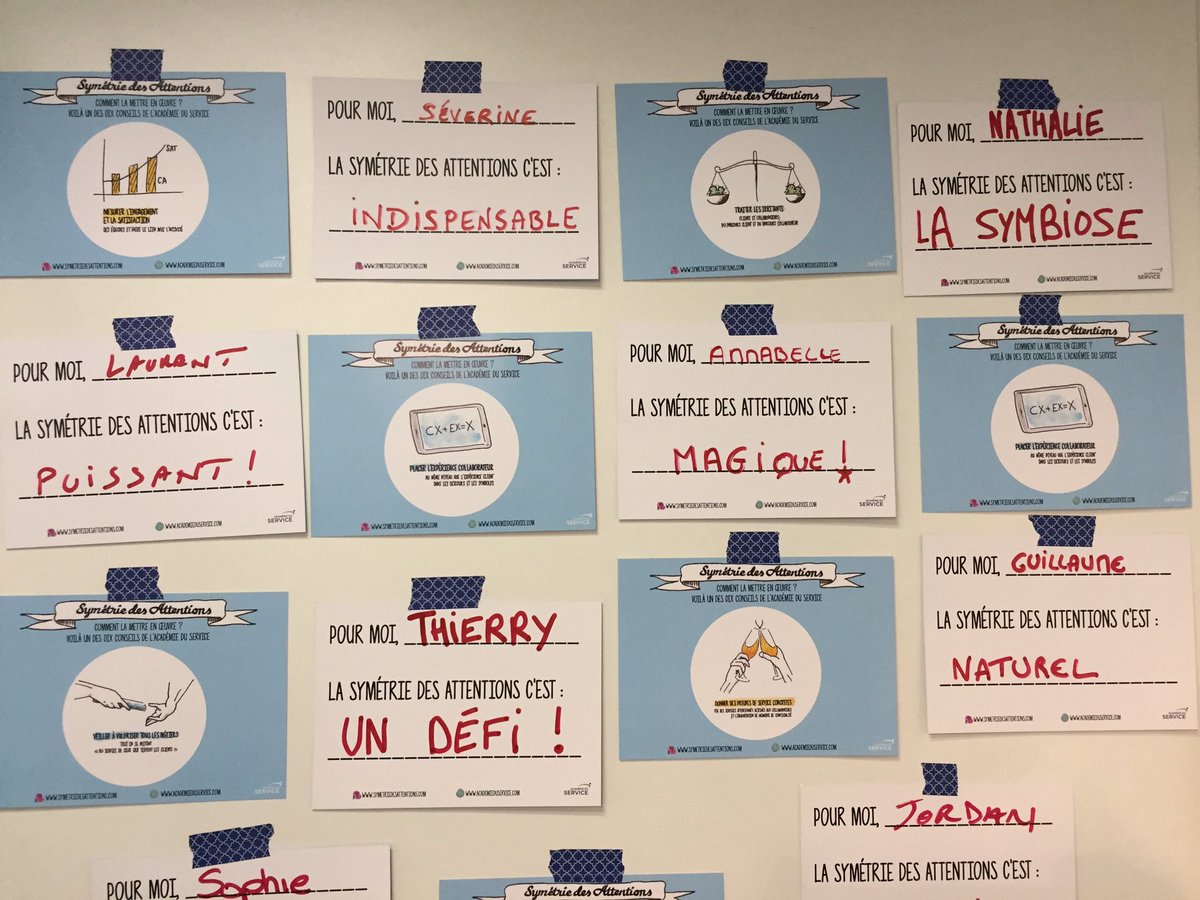 Symétrie des Attentions
COMMENT LA METTRE EN ŒUVRE ?
VOILÀ UN DES DIX CONSEILS DE L'ACADÉMIE DU SERVICE
SAT
CA
MESURER L'ENGAGEMENT
ET LA SATISFACTION
DES ÉQUIPES ET FAIRE LE LIEN AVEC L'ACTIVITÉ
WWW.SYMETRIEDESATTENTIONS.COM
WWW.ACADEMIEDUSERVICE.COM
SERVICE
POUR MOI, SÉVERINE
LA SYMÉTRIE DES ATTENTIONS C'EST :
INDISPENSABLE
WWW.SYMETRIEDESATTENTIONS.COM
WWW.ACADEMIEDUSERVICE.COM
SERVICE
Symétrie des Attentions
COMMENT LA METTRE EN ŒUVRE ?
VOILÀ UN DES DIX CONSEILS DE L'ACADÉMIE DU SERVICE
TRAITER LES IRRITANTS
CLIENTS ET COLLABORATEURS
DU PARCOURS CLIENT ET DU PARCOURS COLLABORATEUR
WWW.SYMETRIEDESATTENTIONS.COM
WWW.ACADEMIEDUSERVICE.COM
SERVICE
POUR MOI, NATHALIE
LA SYMÉTRIE DES ATTENTIONS C'EST :
LA SYMBIOSE
WWW.SYMETRIEDESATTENTIONS.COM
WWW.ACADEMIEDUSERVICE.COM
SERVICE
POUR MOI, LAURENT
LA SYMÉTRIE DES ATTENTIONS C'EST :
PUISSANT !
WWW.SYMETRIEDESATTENTIONS.COM
WWW.ACADEMIEDUSERVICE.COM
SERVICE
Symétrie des Attentions
COMMENT LA METTRE EN ŒUVRE ?
VOILÀ UN DES DIX CONSEILS DE L'ACADÉMIE DU SERVICE
CX+EX=X
PLACER L'EXPÉRIENCE COLLABORATEUR
AU MÊME NIVEAU QUE L'EXPÉRIENCE CLIENT
DANS LES DISCOURS ET LES SYMBOLES
WWW.SYMETRIEDESATTENTIONS.COM
WWW.ACADEMIEDUSERVICE.COM
SERVICE
POUR MOI, ANNABELLE
LA SYMÉTRIE DES ATTENTIONS C'EST :
MAGIQUE !
WWW.SYMETRIEDESATTENTIONS.COM
WWW.ACADEMIEDUSERVICE.COM
SERVICE
Symétrie des Attentions
COMMENT LA METTRE EN ŒUVRE ?
VOILÀ UN DES DIX CONSEILS DE L'ACADÉMIE DU SERVICE
CX+EX=X
PLACER L'EXPÉRIENCE COLLABORATEUR
AU MÊME NIVEAU QUE L'EXPÉRIENCE CLIENT
DANS LES DISCOURS ET LES SYMBOLES
WWW.SYMETRIEDESATTENTIONS.COM
WWW.ACADEMIEDUSERVICE.COM
SERVICE
Symétrie des Attentions
COMMENT LA METTRE EN ŒUVRE ?
VOILÀ UN DES DIX CONSEILS DE L'ACADÉMIE DU SERVICE
VEILLER À VALORISER TOUS LES MÉTIERS
TOUT EN SE METTANT
« AU SERVICE DE CEUX QUI SERVENT LES CLIENTS »
WWW.SYMETRIEDESATTENTIONS.COM
WWW.ACADEMIEDUSERVICE.COM
SERVICE
POUR MOI, THIERRY
LA SYMÉTRIE DES ATTENTIONS C'EST :
UN DÉFI !
WWW.SYMETRIEDESATTENTIONS.COM
WWW.ACADEMIEDUSERVICE.COM
SERVICE
Symétrie des Attentions
COMMENT LA METTRE EN ŒUVRE ?
VOILÀ UN DES DIX CONSEILS DE L'ACADÉMIE DU SERVICE
DONNER DES PREUVES DE SERVICE CONCRÈTES
WWW.SYMETRIEDESATTENTIONS.COM
WWW.ACADEMIEDUSERVICE.COM
SERVICE
POUR MOI, GUILLAUME
LA SYMÉTRIE DES ATTENTIONS C'EST :
NATUREL
WWW.SYMETRIEDESATTENTIONS.COM
WWW.ACADEMIEDUSERVICE.COM
SERVICE
POUR MOI, Sophie
Symétrie des Attentions
POUR MOI, JORDAN
LA SYMÉTRIE DES ATTENTIONS C'EST :